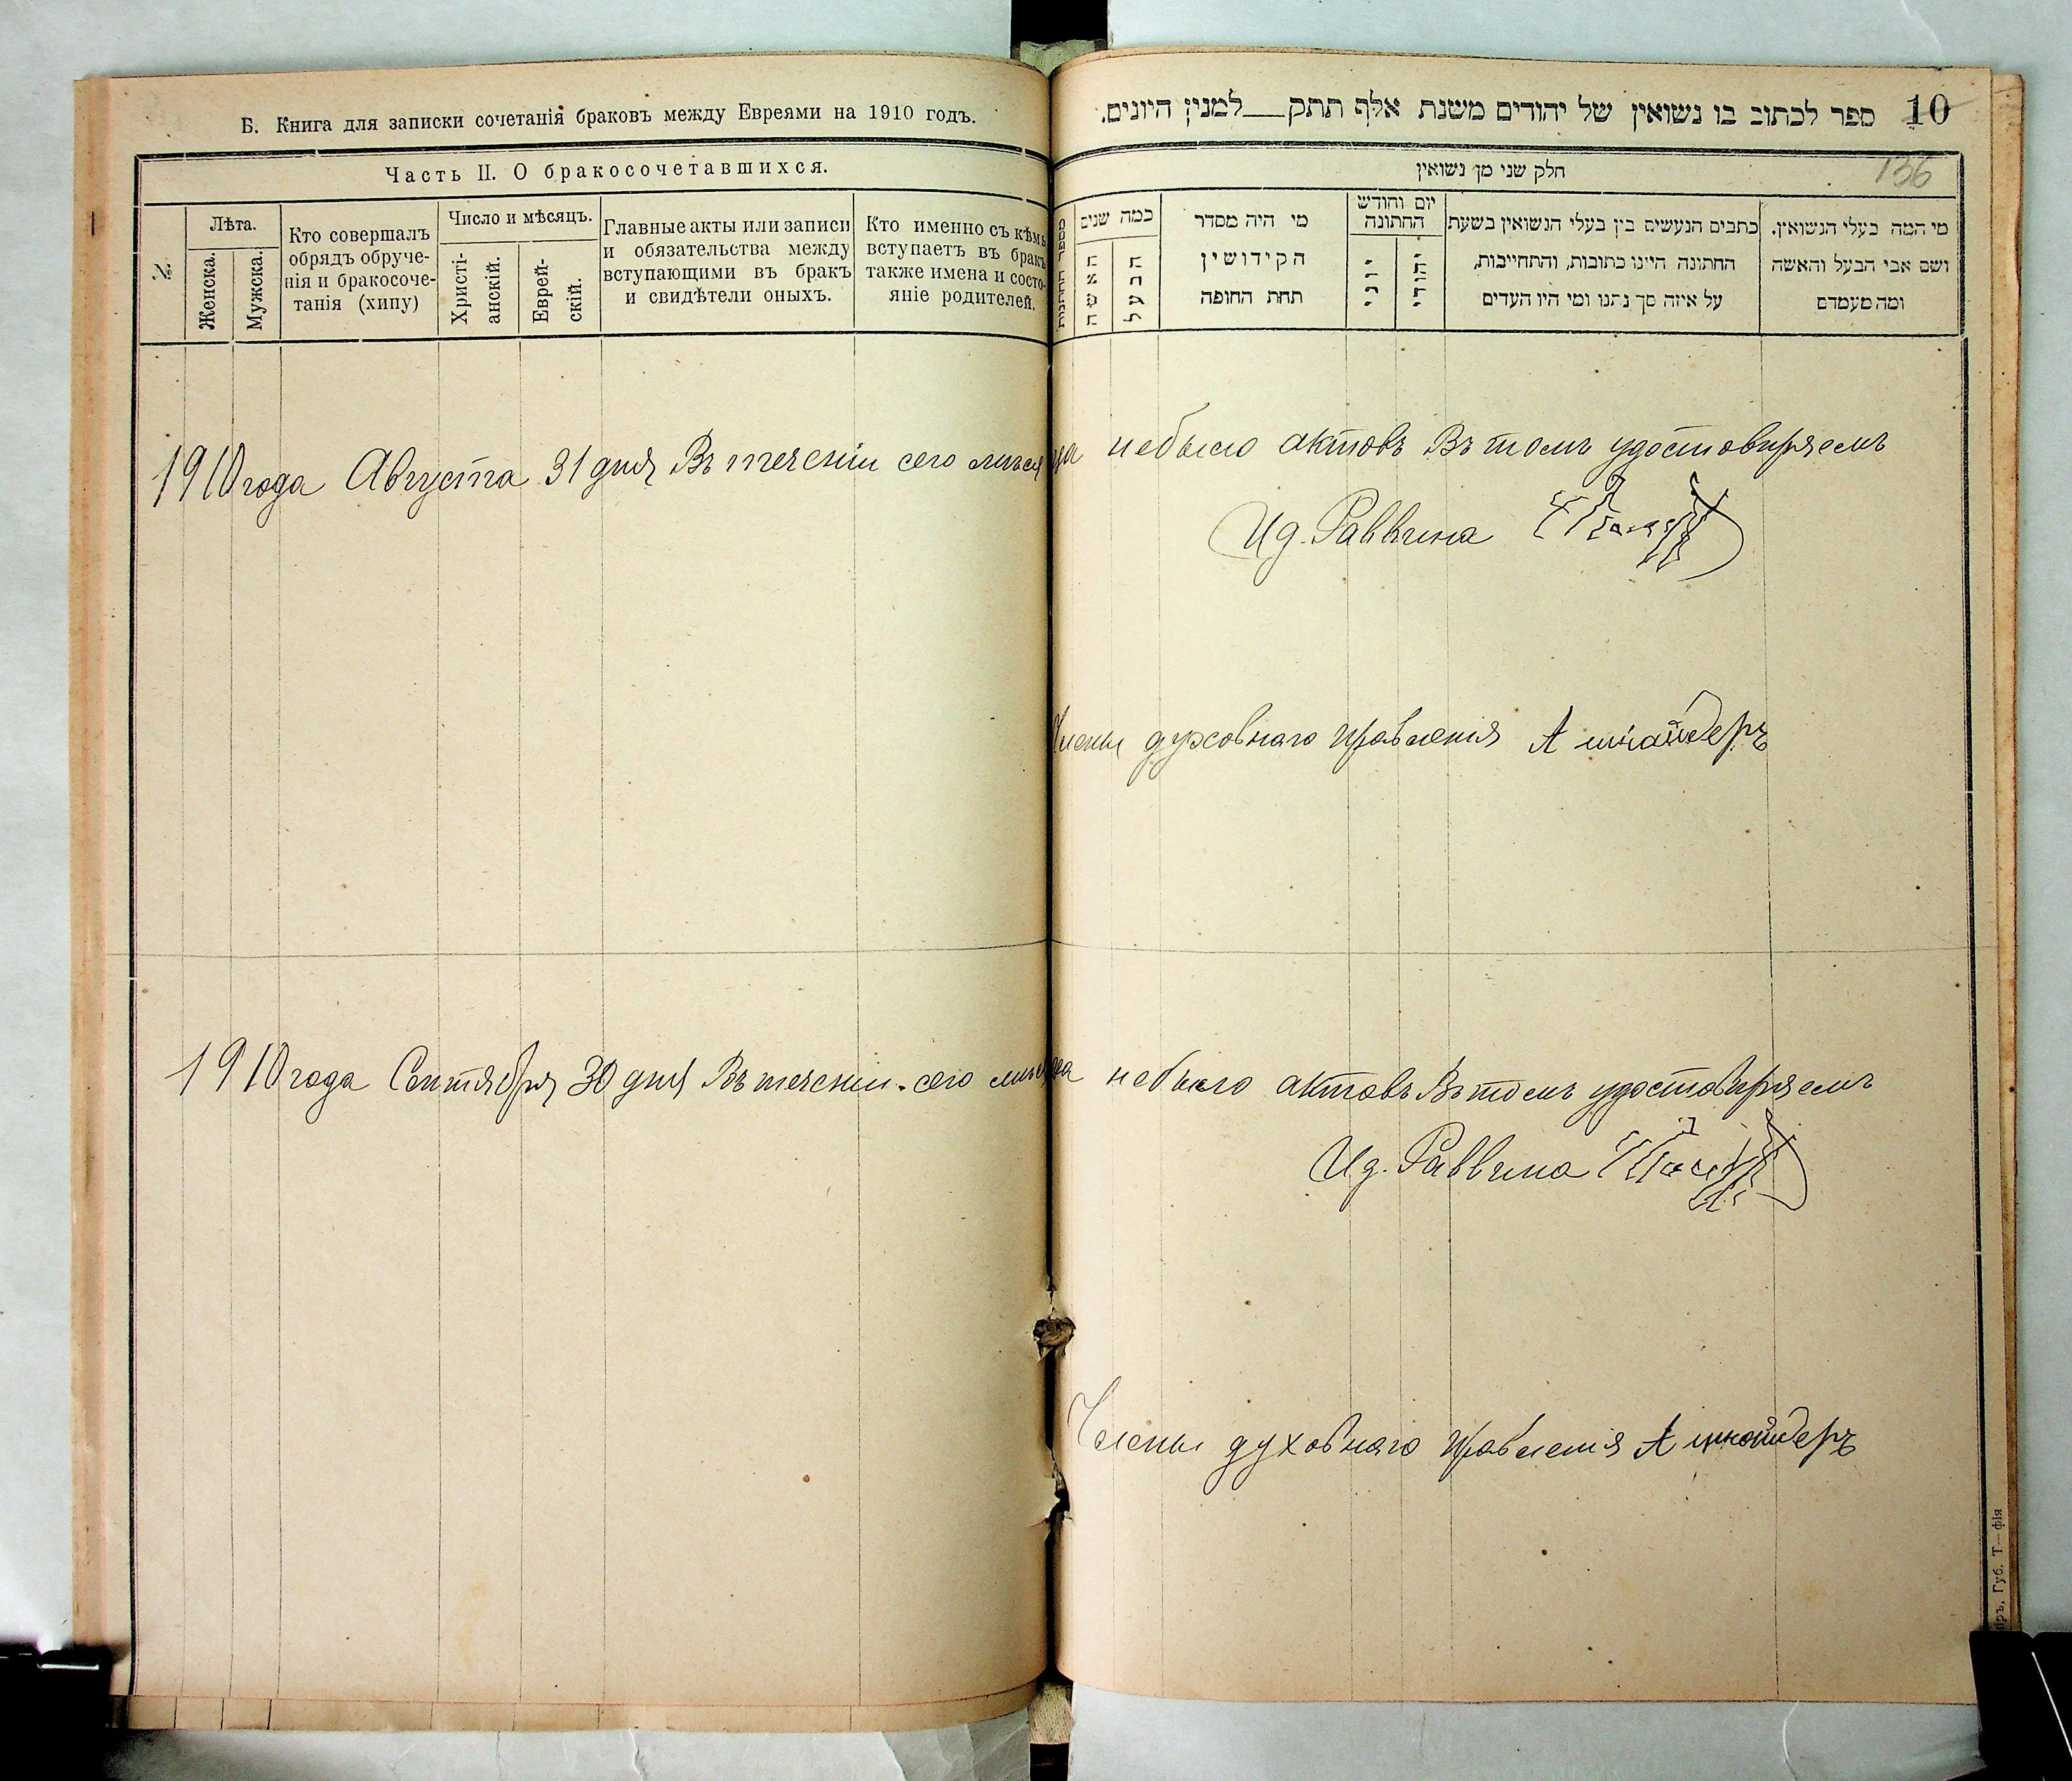 Б. Книга для записки сочетанія браковъ между Евреями на 1910 годъ.
Часть II. О бракосочетавшихся.
№
Лѣта.
Женска.
Мужска.
Кто совершалъ
обрядъ обруче-
нія и бракосоче-
танія (хипу)
Число и мѣсяцъ.
Христі-
анскій.
Еврей-
скій.
Главные акты или записи
и обязательства между
вступающими въ бракъ
и свидѣтели оныхъ.
Кто именно съ кѣмъ
вступаетъ въ бракъ
также имена и состо-
яніе родителей.
10
ספר לכתוב בו נשואין של יהודים משנת אלף תתק___למנין היונים.
136
חלק שני מן נשואין
מספר החתונות
כמה שנים
האשה
הבעל
מי היה מסדר
הקידושין
תחת החופה
יום וחודש
החתונה
יוני
יהודי
כתבים הנעשים בין בעלי הנשואין בשעת
החתונה היינו כתובות, והתחייבות,
על איזה סך נתנו ומי היו העדים
מי המה בעלי הנשואין.
ושם אבי הבעל והאשה
ומה מעמדם
1910 года Августа 31 дня Въ теченіи сего мѣсяца небыло актовъ Въ томъ удостовѣряемъ
Ид. Раввина
Члены духовнаго правленія А шнайдеръ
1910 года Сентября 30 дня Въ теченіи сего мѣсяца небыло актовъ Въ томъ удостовѣряемъ
Ид. Раввина
Члены духовнаго правленія А шнайдеръ
Губ. Т—фія